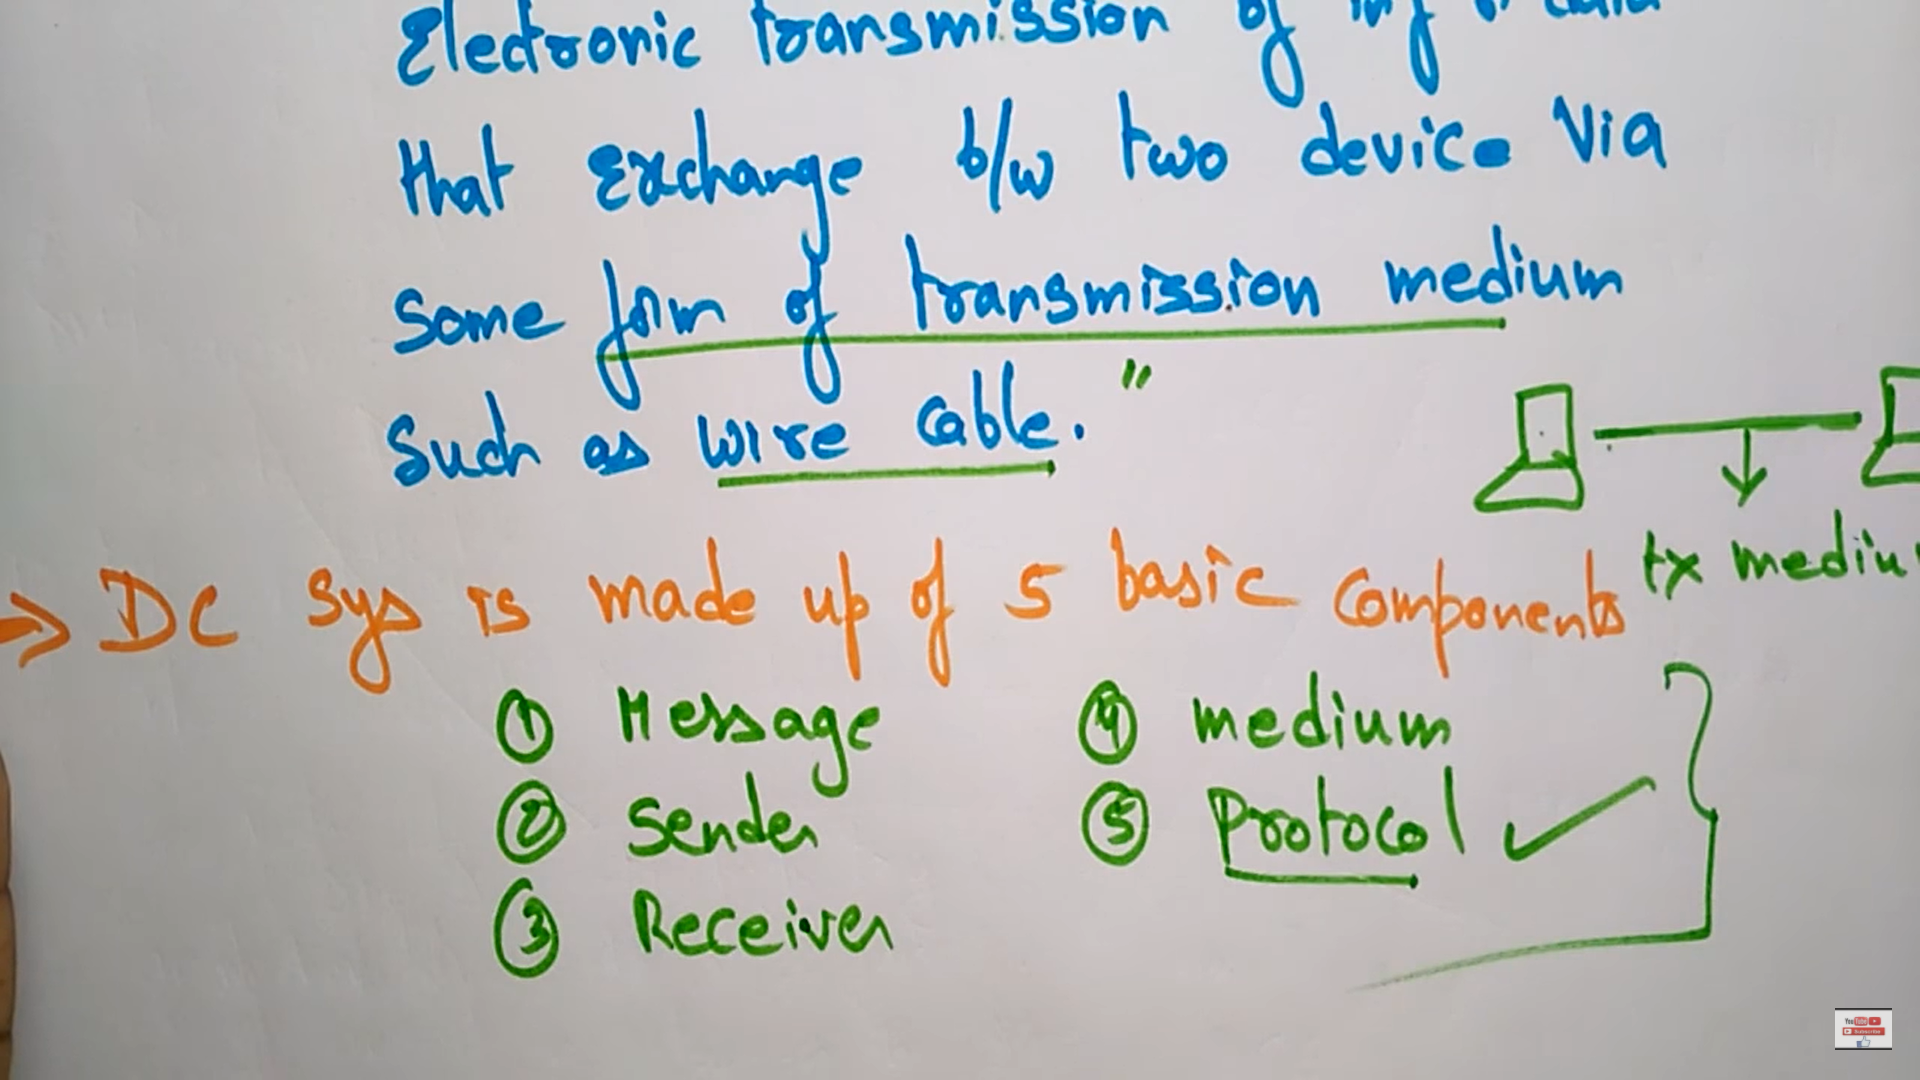 Electronic transmission of inf or data
that exchange b/w two device via
Some form of transmission medium
Such as wire cable."
tx mediu
⇒ DC Sys is made up of 5 basic Components
① Message
② Sender
③ Receiver
④ medium
⑤ protocol ✓
YouTube
Subscribe